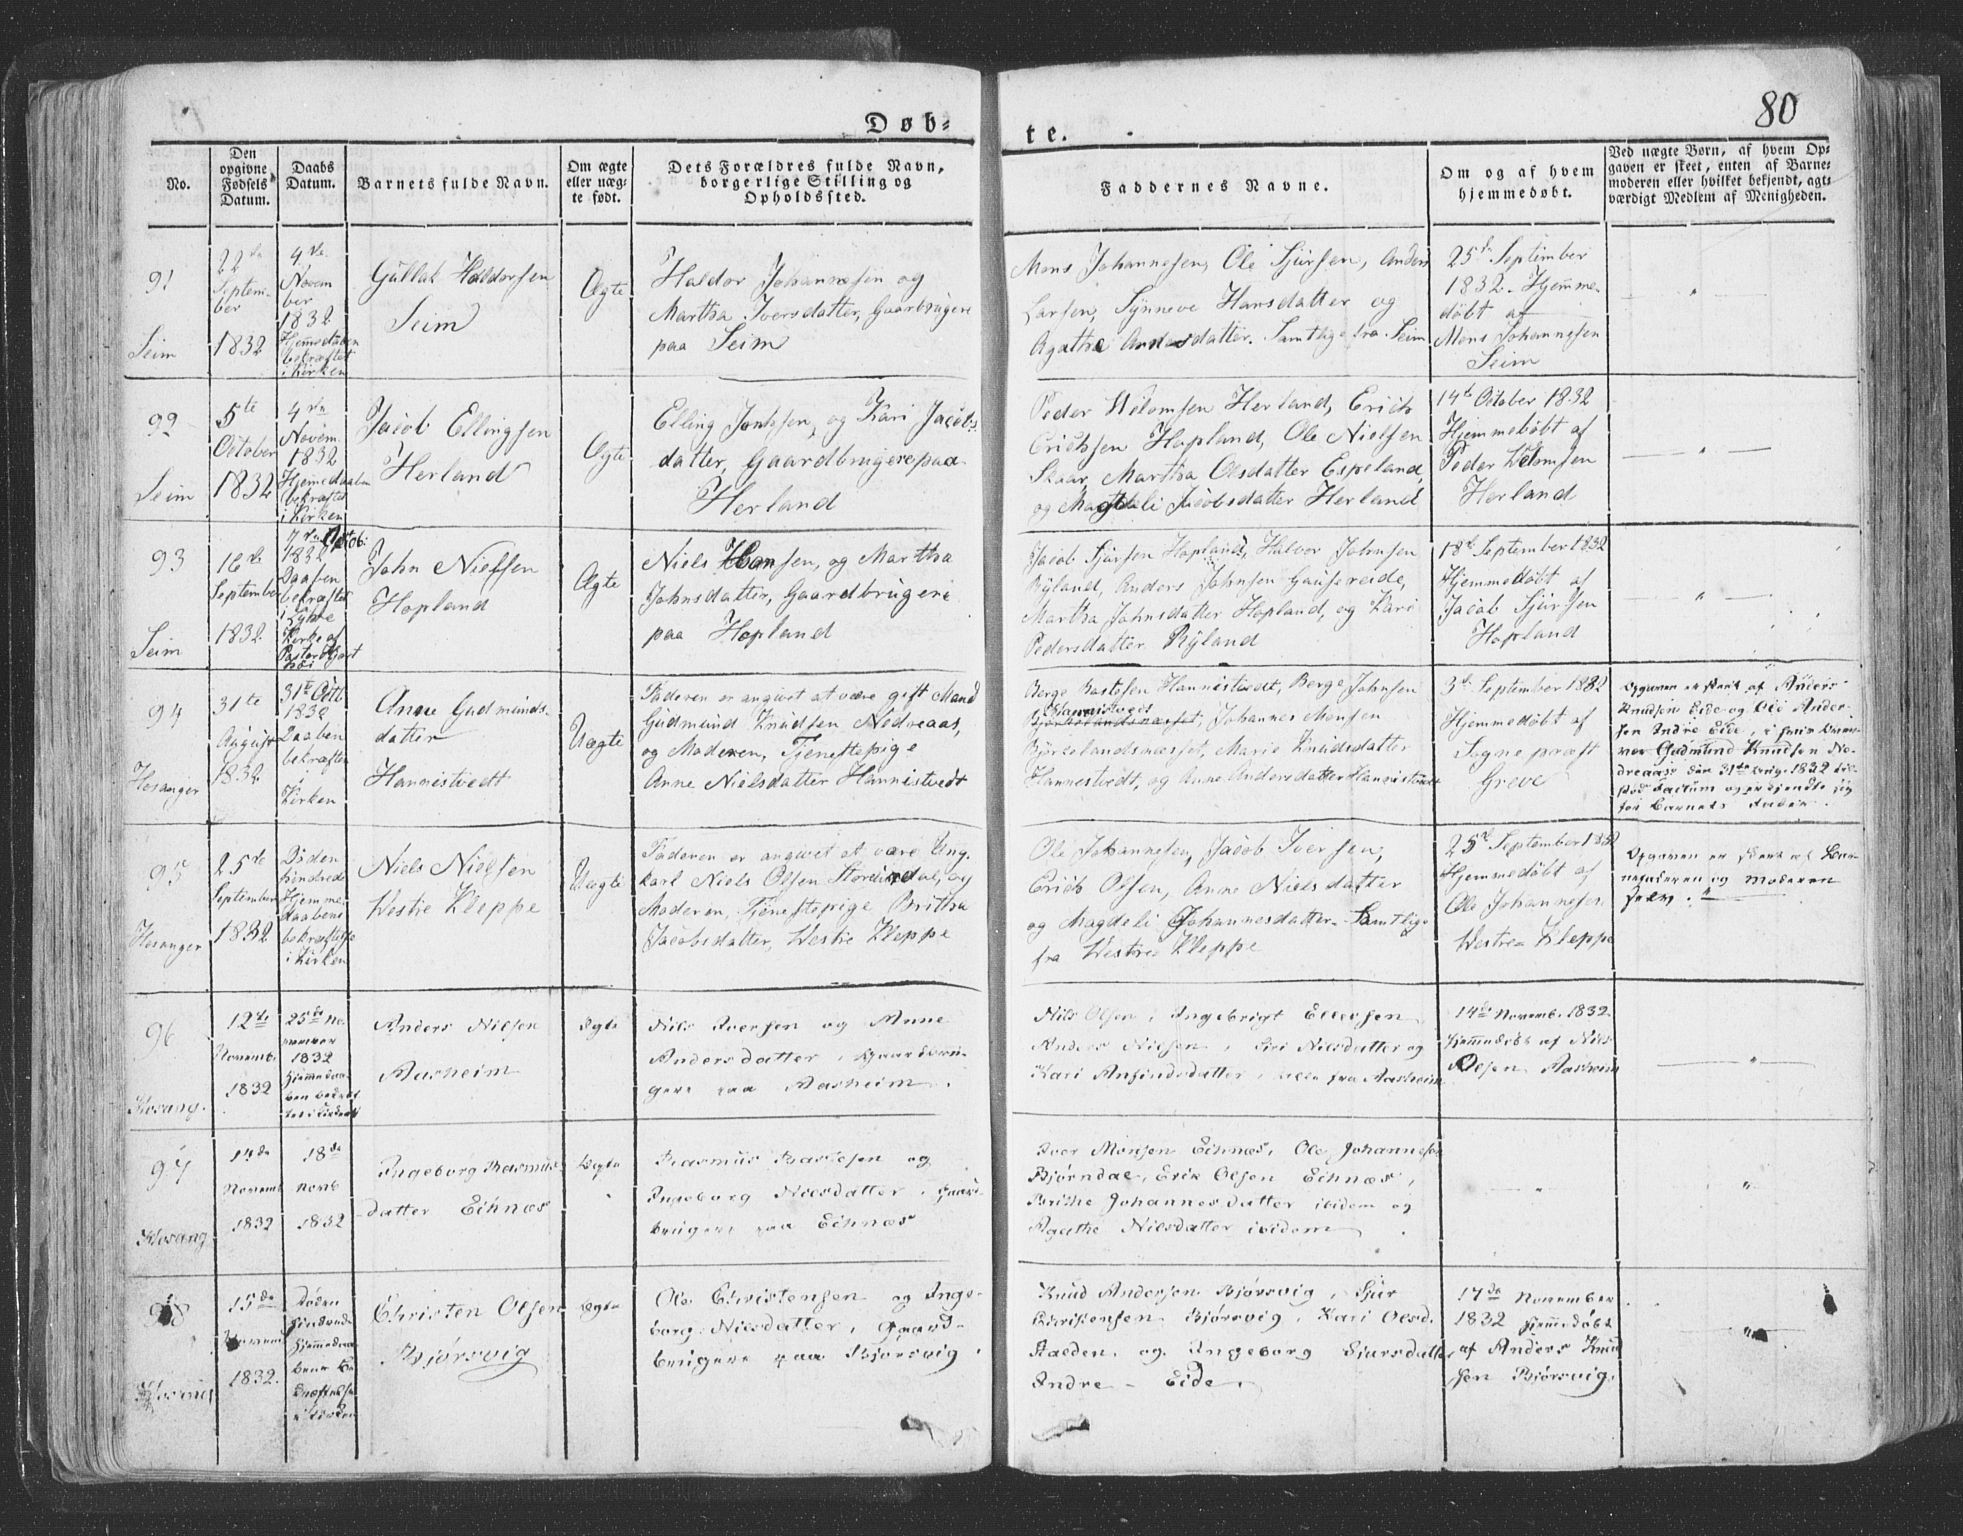 80
Døb-
te.
No.
Den opgivne Fødsels Datum.
Daabs Datum.
Barnets fulde Navn.
Om ægte eller uæg- te født.
Dets Forældres fulde Navn, borgerlige Stilling og Opholdssted.
Faddernes Navne.
Om og af hvem hjemmedøbt.
Ved uægte Børn, af hvem Op- gaven er skeet, enten af Barne- moderen eller hvilket bekjendt, agt- værdigt Medlem af Menigheden.
91
Seim
22de
Septem-
ber
1832
4de
Novem
ber
1832
Hjemedaaben
bekræftet
i Kirken
Gullak Haldorsen
Seim
Ægte
Haldor Johannesen og
Martha Iversdatter, Gaarbrugere
paa Seim
Mons Johannesen, Ole Sjursen, Anders
Larsen, Synneve Hansdatter og
Agatha Andersdatter. Samtlige fra Seim
25de September
1832. Hjemme-
døbt af
Mons Johannesen
Seim
92
Seim
5te
October
1832
4de
Novem.
1832
Hjemedaaben
bekræftet
i Kirken
Jacob Ellingsen
Herland
Ægte
Elling Jonssen, og Kari Jacobs
datter, Gaardbrugere paa
Herland
Peder Wilomsen Herland, Erich
Erichsen Hopland, Ole Nielsen
Skaar, Martha Olsdatter Espeland,
og Magdeli Jacobsdatter Herland
14de October 1832
Hjemmedøbt af
Peder Wilomsen
Herland
93
Seim
16de
September
1832
7de Octob:
1832
Daaben
bekræftet
i Lygre
Kirke af
Pastor
John Nielsen
Hopland
Ægte
Niels Hansen, og Martha
Johnsdatter, Gaardbrugere
paa Hopland
Jacob Sjursen Hopland, Halvor Johnsen
Ryland, Anders Johnsen Gausereide,
Martha Johnsdatter Hopland, og Kari
Pedersdatter Ryland
18de September 1832
Hjemmedøbt af
Jacob Sjursen
Hopland
94
Hosanger
31te
August
1832
31te Octb
1832
Daaben
bekræftet
i
Kirken
Anne Gudmunds-
datter
Hannistvedt
Uægte
Faderen er angivet at være gift Mand
Gudmund Knudsen Nedreaas,
og Moderen, Tjenestepige
Anne Nielsdatter Hannistvedt
Berge Bastesen Hannistvedt, Berge Johnsen
Hannistvedt
Bjørkelandsnæsset, Johannes Monsen
Bjørkelandsnæsset, Marie Knudsdatter
Hannestvedt, og Anne Andersdatter Hannistvedt
3de September 1832
Hjemmedøbt af
Sognepræst
Greve
Opgaven er skeet af Anders
Knudsen Eide og Ole Ander-
sen Indre Eide,
Gudmund Knudsen Ne-
dreaas den 31te Aug. 1832 til-
stod Factum og erkjendte sig
for Barnets Fader.
95
Hosanger
25de
September
1832
Døden
hindrede
Hjemme-
daabens
bekræftelse
i Kirken
Niels Nielsen
Westre Kleppe
Uægte
Faderen er angivet at være Ung-
karl Niels Olsen Storeindal, og
Moderen, Tjenestepige Britha
Jacobsdatter, Westre Kleppe
Ole Johannesen, Jacob Iversen,
Erich Olsen, Anne Nielsdatter
og Magdeli Johannesdatter. Samtlige
fra Westre Kleppe
25de September 1832
Hjemmedøbt af
Ole Johannesen
Westre Kleppe
Opgaven er skeet af Bar-
nefaderen og Moderen
selv.
96
Hosang.
12te
Novemb.
1832
25de No-
vember
1832
Hjemmedaa-
ben bekræf
tet i Kirken
Anders Nilsen
Aasheim
Ægte
Nils Iversen og Anne
Andersdatter, Gaardbru-
gere paa Aasheim.
Nils Olsen, Ingebrigt Ellersen
Anders Nilsen, Siri Nilsdatter og
Kari Anfindsdatter, alle fra Aasheim
14de Novemb. 1832.
Hjemmedøbt af Nils
Olsen Aasheim
97
Hosang.
14de
Novemb
1832
18de
Novb
1832
Ingeborg Rasmus-
datter Eihnæs
Ægte
Rasmus Bastesen og
Ingeborg Nilsdatter, Gaard-
brugere paa Eihnæs
Iver Monsen Eihnæs, Ole Johannesen
Bjørndal, Erik Olsen Eihnæs,
Brithe Johannesdatter ibidem og
Agathe Nilsdatter ibidem
98
Hosang
15de
Novemb
1832.
Døden
hindrede
Hjemmedaa-
bens be-
kræftelse
i Kirken
Christen Olsen
Bjørsvig
Ægte
Ole Christensen og Inge-
borg Nilsdatter, Gaard-
brugere paa Bjørsvig.
Knud Andersen Bjørsvig, Sjur
Christensen Bjørsvig, Kari Olsd.
Stalden, og Ingeborg Sjursdatter
Indre-Eide.
17de November
1832 Hjemmedøbt
af Anders Knud
sen Bjørsvig.